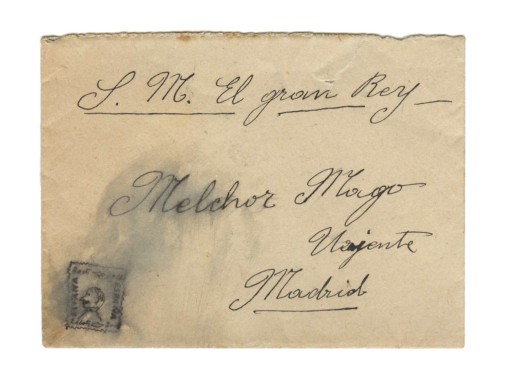 S. M. El gran Rey
Melchor Mago
Madrid